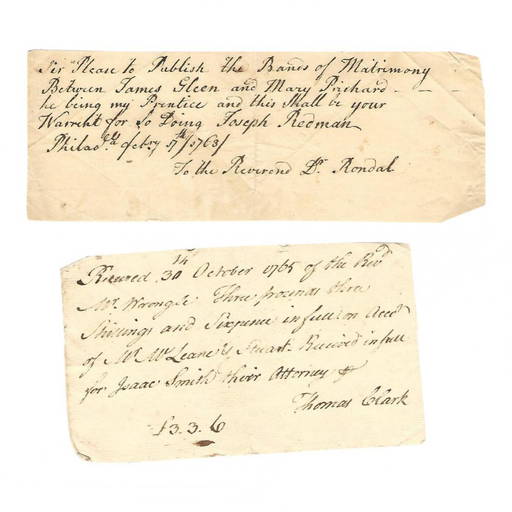 Sir Please to Publish the Bands of Matrimony
Between James Gleen and Mary Prichard
he being my Prentice and this Shall be your
Warrent for So Doing Joseph Redman
Philad.a Febry 17th 1763/
To the Reverend Dr. Rondal
Receved 30th October 1765 of the Revd
Mr. Wrongle Three pounds three
Shillings and Sixpence in full on Acct
of Mr. McLeane & Stuart. Received in full
for Isaac Smith their Attorney
Thomas Clark
£3.3.6